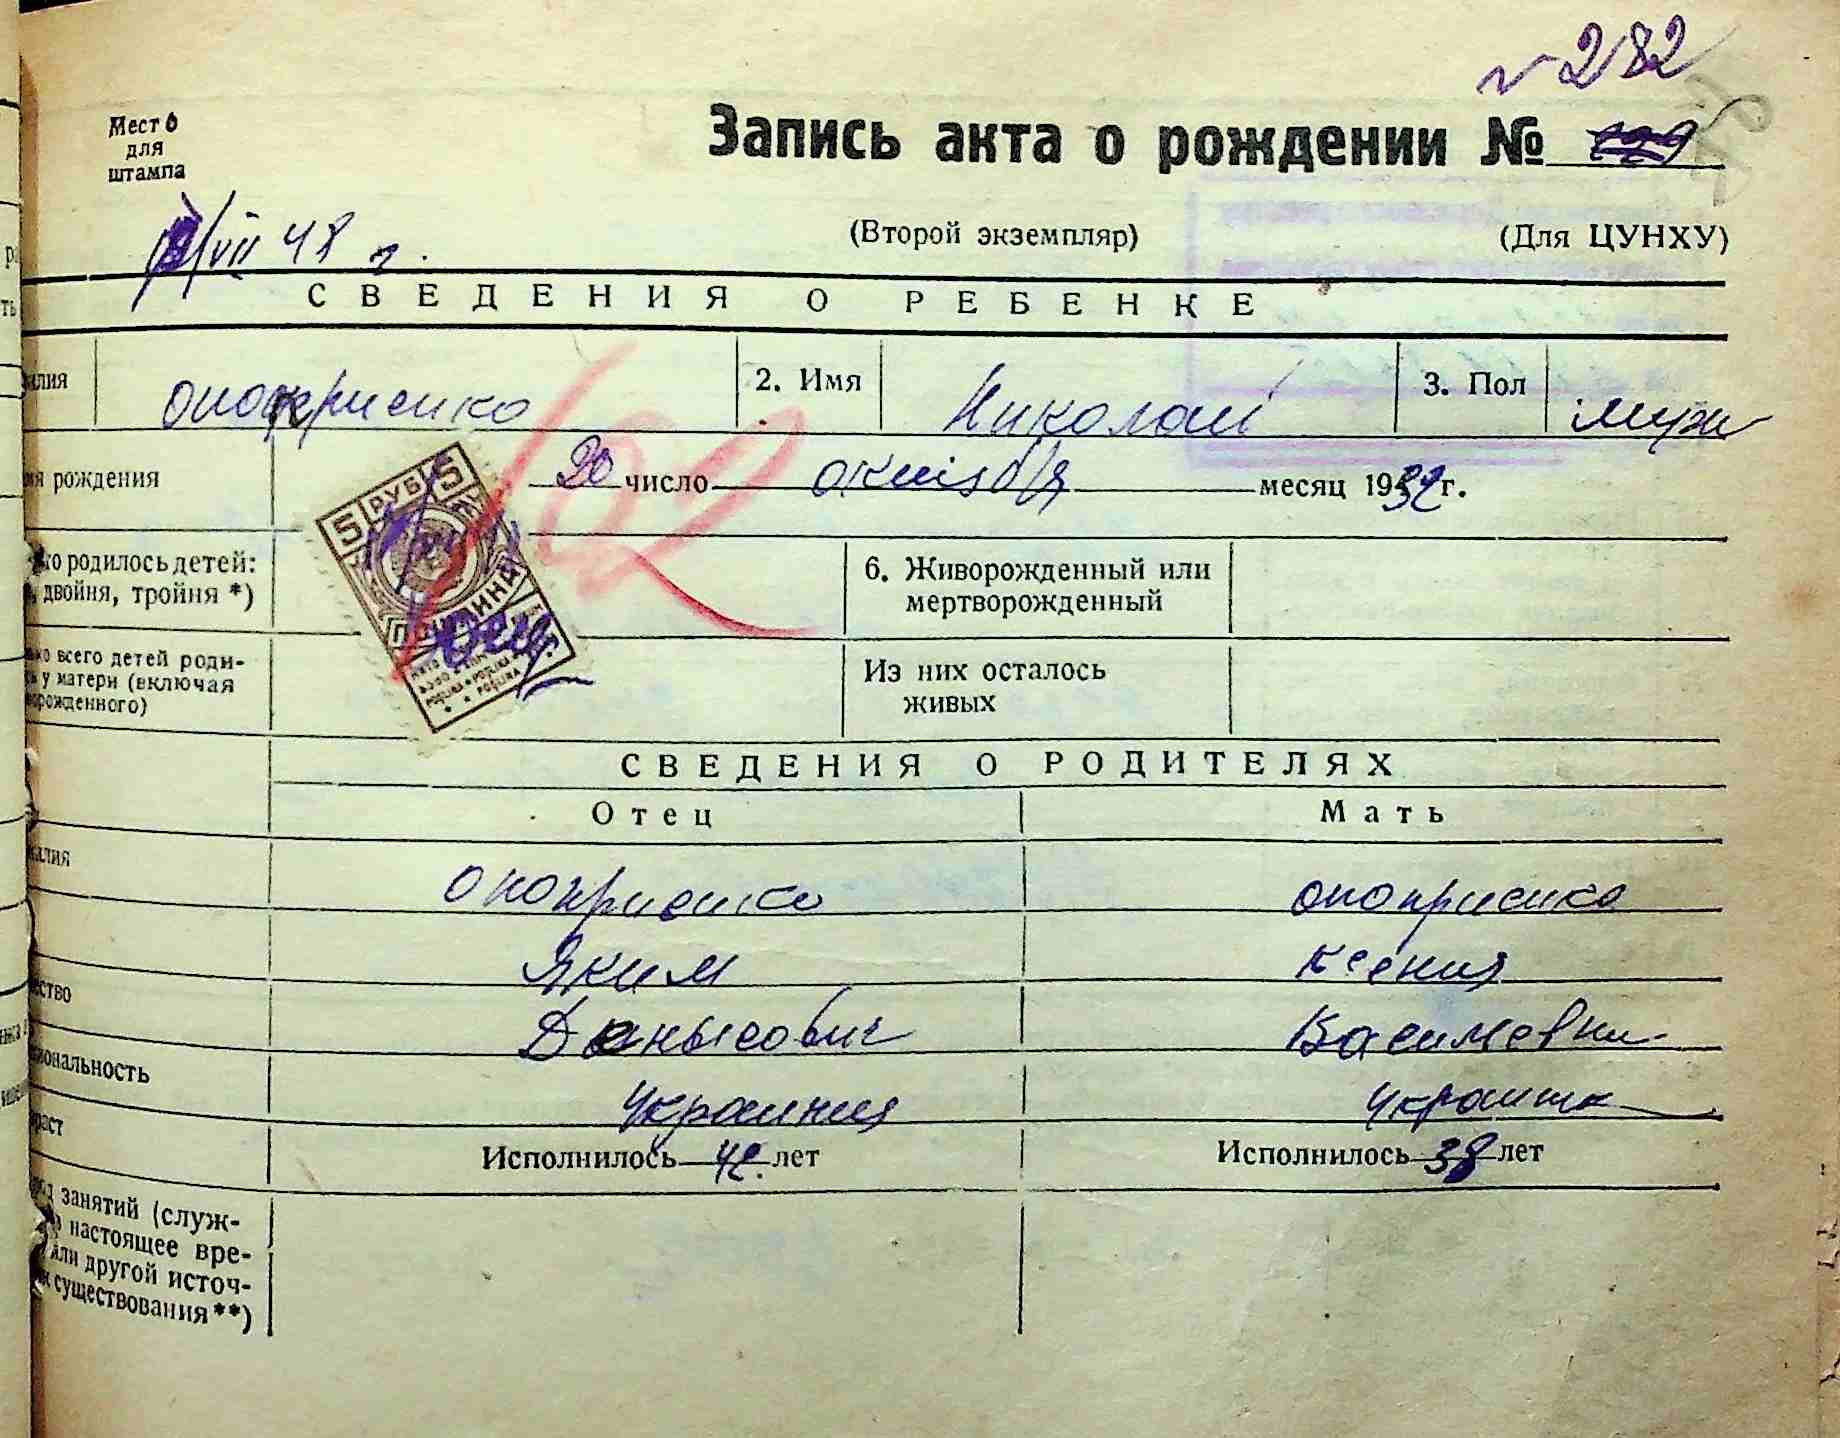 № 282
Место
для
штампа
Запись акта о рождении №
/VII 48 г.
(Второй экземпляр)
(Для ЦУНХУ)
СВЕДЕНИЯ О РЕБЕНКЕ
илия Опоприенко 2. Имя Николай 3. Пол муж
ия рождения 20 число октября месяц 1932 г.
го родилось детей:
, двойня, тройня *)
6. Живорожденный или
мертворожденный
ко всего детей роди-
ь у матери (включая
ворожденного)
Из них осталось
живых
5 РУБ 5
СВЕДЕНИЯ О РОДИТЕЛЯХ
Отец Мать
милия Опоприенко Опоприенко
Яким Ксения
чество Денысович Василевна
циональность украинец украинка
раст Исполнилось 42 лет Исполнилось 38 лет
род занятий (служ-
в настоящее вре-
или другой источ-
к существования **)